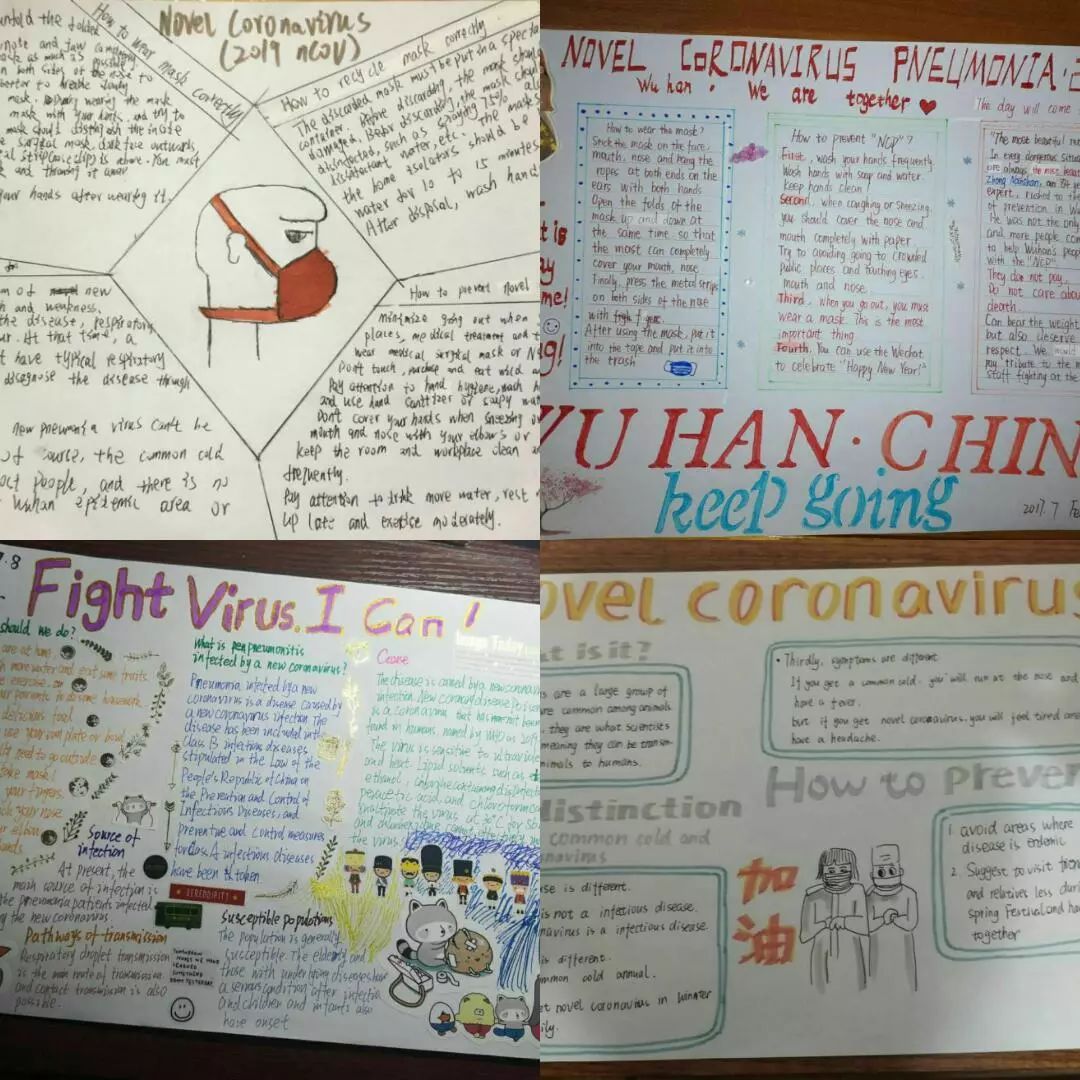 Novel Coronavirus
(2019 nCoV)
How to wear mask
correctly
unfold the folded
on both sides of the nose to
wearing the mask
mask with your
and try to
mask should distinguish the inside
surgical mask dark face outwards
is above. You must
and throwing it away
your hands after wearing it.
How to recycle mask correctly
The discarded mask must be put in a special
container. Before discarding, the mask should
damaged. Before discarding, the mask should
disinfected, such as spraying 75% al
disinfectant water, etc. the masks
the home isolators should be
water for 10 to 15 minutes
After disposal, wash hand
of new
and weakness.
the disease, respiratory
ur. At that time, a
t have typical respiratory
diagnose the disease through
new pneumonia virus can't be
of course, the common cold
people, and there is no
Wuhan epidemic area or
How to prevent Novel
minimize going out when
places, medical treatment and t
wear medical surgical mask or N9
Don't touch, purchase and eat wild a
Pay attention to hand hygiene, wash h
and use hand sanitizers or soapy wat
Don't cover your hands when sneezing or
mouth and nose with your elbows or
keep the room and workplace clean a
frequently.
Pay attention to drink more water, rest
up late and exercise moderately.
NOVEL CORONAVIRUS PNEUMONIA.
Wu han . We are together
The day will come
How to wear the mask?
Stick the mask on the face,
mouth, nose and hang the
ropes at both ends on the
ears with both hands
Open the folds of the
mask up and down at
the same time, so that
the most can completely
cover your mouth, nose.
Finally, press the metal strips
on both sides of the nose
with
After using the mask, put it
into the tape and put it into
the trash
How to prevent "NCP"?
First, wash your hands frequently
Wash hands with soap and water.
keep hands clean!
Second, when coughing or sneezing,
you should cover the nose and
mouth completely with paper
Try to avoiding going to crowded
public places and touching eyes.
mouth and nose.
Third, when you go out, you must
wear a mask. This is the most
important thing
Fourth, You can use the Wechat
to celebrate "Happy New Year!"
"The most beautiful
In every dangerous situat
are always the most beaut
Zhong Nanshan, an
expert, rushed to the
of prevention in W
He was not the only
and more people com
to help Wuhan's peop
with the "NCP"
They do not pay
Do not care about
death.
Can bear the weight
but also deserve
respect. We would
pay tribute to the
staff fighting at the
t is
ay
me!
g!
WU HAN · CHIN
keep going
7 Fe
.8
Fight Virus. I Can!
should we do?
are at home
more water and eat some fruits.
exercise.
your parents to do some housework
delicious food
use your own plate or bowl
need to go outside
take mask!
your fingers.
your nose
elbow
hands
What is
infected by a new coronavirus?
Pneumonia infected by a new
coronavirus is a disease caused by
a new coronavirus infection. The
disease has been included into
Class B infectious diseases
stipulated in the Law of the
People's Republic of China on
the Prevention and Control of
Infectious Diseases, and
preventive and control measures
for class A infectious diseases
have been taken.
Cause
The disease is caused by a new coronavirus
infection.
is a coronavirus that has not been
found in humans, named by WHO as 2019
The virus is sensitive to ultraviolet
and heat. Lipid solvents such as
ethanol, chlorine containing disinfect
peracetic acid, and chloroform
inactivate the virus
the virus.
Source of
infection
At present, the
main source of infection is
the pneumonia patients infected
by the new coronavirus
Pathways of transmission
Respiratory droplet transmission
is the main route of transmission
and contact transmission is also
possible.
SERENDIPITY
Susceptible populations
The population is generally
susceptible. The elderly and
those with underlying diseases have
a serious condition after infection
and children and infants also
have onset
ovel coronavirus
t is it?
s are a large group of
re common among animals
they are what scientists
meaning they can be transm-
nimals to humans.
distinction
common cold and
navirus
se is different.
is not a infectious disease.
navirus is a infectious disease.
is different.
mmon cold annual.
t novel coronavirus in winter
ily.
• Thirdly, symptoms are different
If you get a common cold, you will run at the nose and
have a fever.
but if you get novel coronavirus, you will feel tired and
have a headache.
How to preven
1. avoid areas where
disease is endemic
2. Suggest to visit
and relatives less durin
Spring Festival and ha
together
加
油